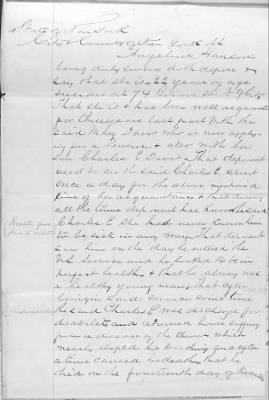 State of New York
City & County of New York SS
Angeline Hanson
being duly sworn doth depose &
say that she is 22 years of age
resides at 74 N.Y. City
That she is & has been well acquainted
for three years last past with the
said Mary Davis who is now apply-
ing for a Pension & also with her
Son Charles E Davis That deponent
used to see the said Charles E. about
once a day for the above mentioned
time of her acquaintance & that during
all the time deponent has known said
Charles E She had never known him
to be sick in any way That deponent
saw him on the day he entered the
U.S. Service and he looked to be in
perfect health & that he always was
a healthy young man, that after
being in said service some time
he said Charles E was discharged for
disability and returned home suffering
from a disease of the throat which
nearly stoped his breathing and after
a time caused his death, that he
died on the fourteenth day of